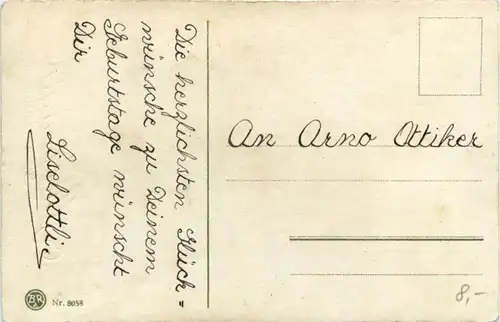 Die herzlichsten Glück=
wünsche zu Deinem
Geburtstage wünscht
Dir
Liselottli
An Arno Ottiker
BR
Nr. 8058
8,-